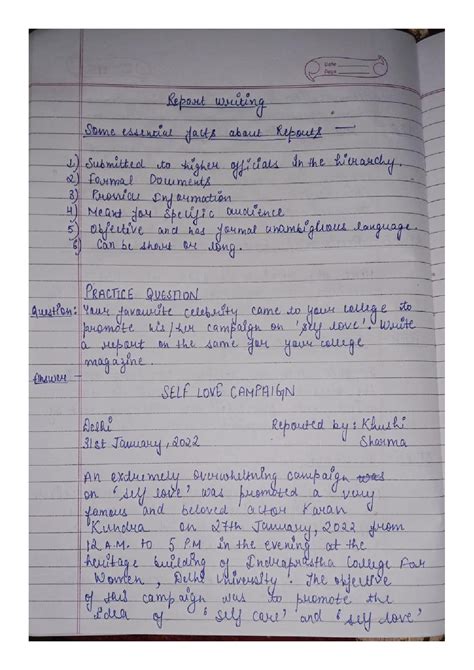 Date
Page
Report writing
Some essential facts about Reports —
1) Submitted to higher officials in the hierarchy.
2) Formal Documents
3) Provide Information
4) Meant for Specific audience
5) Objective and has formal unambigious language.
6) Can be short or long.
PRACTICE QUESTION
Question: Your favourite celebrity came to your college to
promote his/her campaign on 'self love'. Write
a report on the same for your college
magazine.
Answer -
SELF LOVE CAMPAIGN
Delhi Reported by: Khushi
31st January, 2022 Sharma
An extremely overwhelming campaign was
on 'self love' was promoted a very
famous and beloved actor Karan
Kundra on 27th January, 2022 from
12 A.M. to 5 PM in the evening at the
heritage building of Indraprastha College For
Women, Delhi University. The objective
of this campaign was to promote the
idea of 'self care' and 'self love'